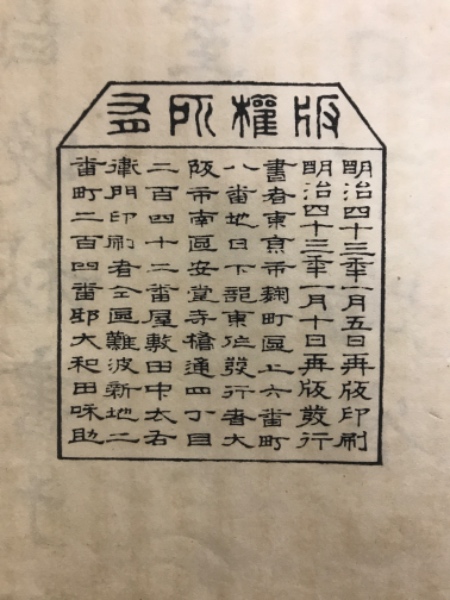 版權所有
明治四十三年一月五日再版印刷
明治四十三年一月十日再版發行
書者東京市麹町區上六番町
八番地日下部東作發行者大
阪市南區安堂寺橋通四丁目
二百四十二番屋敷田中太右
衛門印刷者仝區難波新地二
番町二百四番邸大和田味助